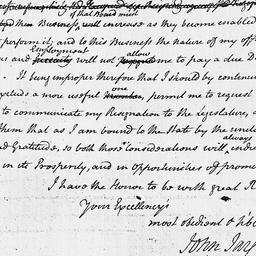 of that Board must
than Business, will increase as they become enabled
perform it; and to this Business the nature of my off
Employment allow
and will not me to pay a due D
It being improper therefore that I should by continuin
one
preclude a more useful permit me to request
to communicate my Resignation to the Legislature, a
them that as I am bound to the State by the
always
and Gratitude, so both those Considerations will indu
in its Prosperity, and in Opportunities of promo
I have the Honor to be with great R
Your Excellency's
most obedient & hble
John Jay